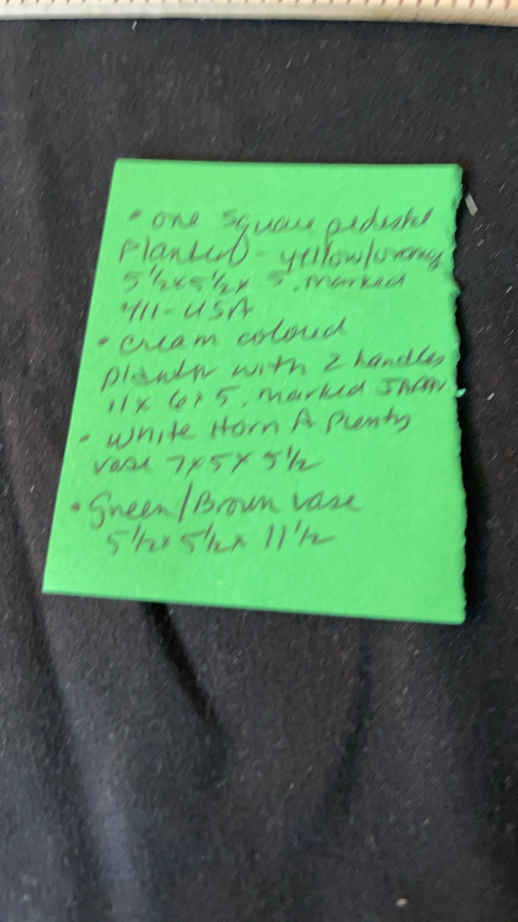 • one square pedestal
Planter - yellow/orang
5 1/2 x 5 1/2 x 5. marked
411-USA
• cream colored
planter with 2 handles
11 x 6 x 5. marked JAPAN
• White Horn A Plenty
vase 7 x 5 x 5 1/2
• Green/Brown vase
5 1/2 x 5 1/2 x 11 1/2